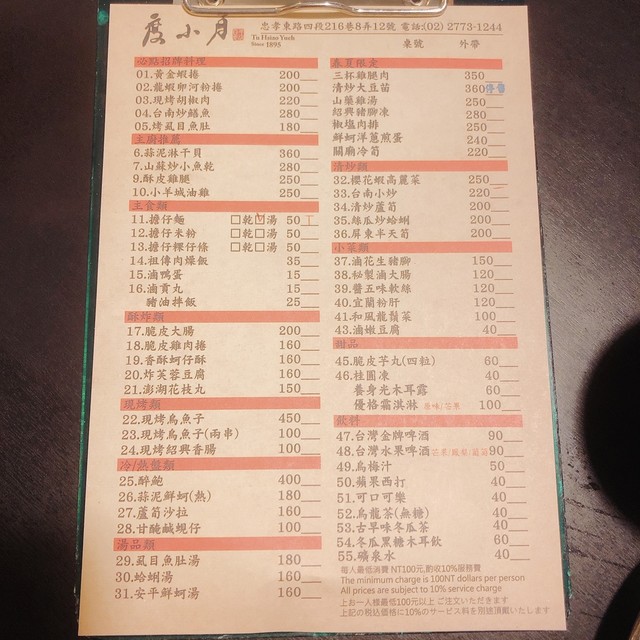 度小月
Tu Hsiao Yueh
Since 1895
忠孝東路四段216巷8弄12號 電話:(02) 2773-1244
桌號 外帶
必點招牌料理
01.黃金蝦捲 200
02.龍蝦卵河粉捲 200
03.現烤胡椒肉 220
04.台南炒鱔魚 280
05.烤虱目魚肚 180
主廚推薦
6.蒜泥淋干貝 360
7.山蘇炒小魚乾 280
9.酥皮雞腿 250
10.小羊城油雞 250
主食類
11.擔仔麵 □乾□湯 50
12.擔仔米粉 □乾□湯 50
13.擔仔粿仔條 □乾□湯 50
14.祖傳肉燥飯 35
15.滷鴨蛋 15
16.滷貢丸 15
豬油拌飯 25
酥炸類
17.脆皮大腸 200
18.脆皮雞肉捲 160
19.香酥蚵仔酥 160
20.炸芙蓉豆腐 160
21.澎湖花枝丸 150
現烤類
22.現烤烏魚子 450
23.現烤烏魚子(兩串) 100
24.現烤紹興香腸 100
冷/熱盤類
25.醉鮑 400
26.蒜泥鮮蚵(熱) 180
27.蘆筍沙拉 160
28.甘醃鹹蜆仔 100
湯品類
29.虱目魚肚湯 180
30.蛤蜊湯 160
31.安平鮮蚵湯 160
春夏限定
三杯雞腿肉 350
清炒大豆苗 360 停售
山藥雞湯 250
紹興豬腳凍 280
椒塩肉排 250
鮮蚵洋蔥煎蛋 240
關廟冷筍 220
清炒類
32.櫻花蝦高麗菜 250
33.台南小炒 220
34.清炒蘆筍 200
35.絲瓜炒蛤蜊 200
36.屏東半天筍 200
小菜類
37.滷花生豬腳 150
38.秘製滷大腸 120
39.醬五味軟絲 120
40.宜蘭粉肝 120
41.和風龍鬚菜 100
43.滷嫩豆腐 40
甜品
45.脆皮芋丸(四粒) 60
46.桂圓凍 40
養身光木耳露 60
優格霜淇淋 原味/芒果 100
飲料
47.台灣金牌啤酒 90
48.台灣水果啤酒 芒果/鳳梨/葡萄 90
49.烏梅汁 50
50.蘋果西打 40
51.可口可樂 40
52.烏龍茶(無糖) 40
53.古早味冬瓜茶 40
54.冬瓜黑糖木耳飲 60
55.礦泉水 40
每人最低消費 NT100元,酌收10%服務費
The minimum charge is 100NT dollars per person
All prices are subject to 10% service charge
上お一人様最低100元以上ご注文いただきます
上記の税込価格に10%のサービス料を別途頂戴いたします